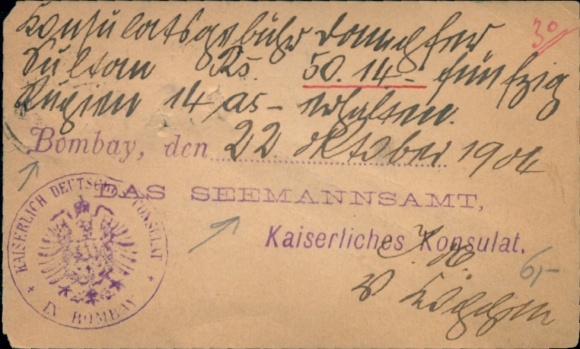 Konsulatsgebühr Dampfer
Sultan Rs. 50.14- fünfzig
Rupien 14 as- erhalten.
30
Bombay, den 22 Oktober 1904
DAS SEEMANNSAMT,
Kaiserliches Konsulat.
KAISERLICH DEUTSCHES KONSULAT
IN BOMBAY
6,-